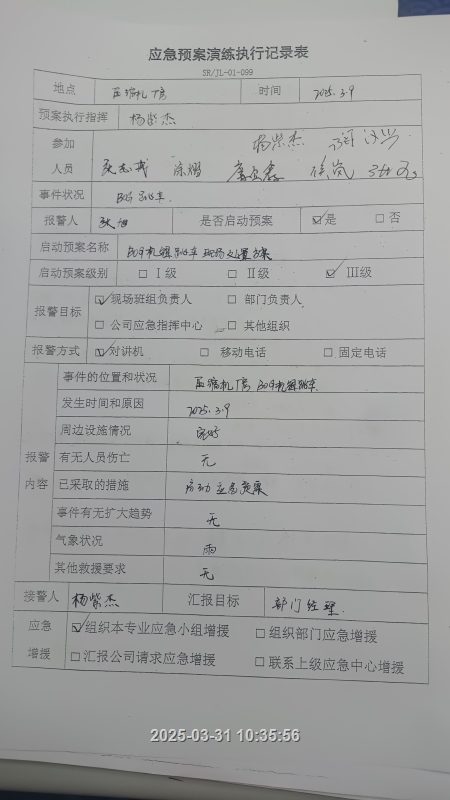 应急预案演练执行记录表
SR/JL-01-099
地点 压缩机厂房 时间 2025.3.9
预案执行指挥 杨紫杰
参加 杨紫杰
人员
事件状况 跳车.
报警人 是否启动预案 ☑是 □否
启动预案名称 机组跳车现场处置方案
启动预案级别 □Ⅰ级 □Ⅱ级 ☑Ⅲ级
报警目标 ☑现场班组负责人 □部门负责人
□公司应急指挥中心 □其他组织
报警方式 ☑对讲机 □移动电话 □固定电话
报警内容
事件的位置和状况 压缩机厂房 机组跳车
发生时间和原因 2025.3.9
周边设施情况 完好
有无人员伤亡 无
已采取的措施 启动应急预案
事件有无扩大趋势 无
气象状况 雨
其他救援要求 无
接警人 杨紫杰 汇报目标 部门经理.
应急增援 ☑组织本专业应急小组增援 □组织部门应急增援
□汇报公司请求应急增援 □联系上级应急中心增援
2025-03-31 10:35:56